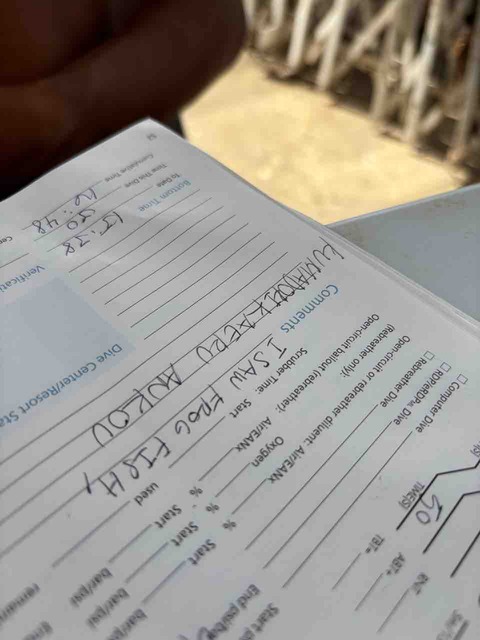 TIME(S)
50
RNT
ABT+
TBT=
☐ Computer Dive
☐ RDP/eRDPML Dive
☐ Rebreather Dive
Open-circuit or rebreather diluent: Air/EANx
Oxygen
Open-circuit bailout (rebreather): Air/EANx
(Rebreather only):
Scrubber Time: Start
used
%
%
%
Start
Start
Start
bar/psi
bar/psi
bar/psi
Comments
I SAW FROG FISH,
KUMADORI KAERU ANKOU
Bottom Time
To Date
15:58
Time This Dive
50
Cumulative Time
16:48
Verificati
Dive Center/Resort Sta